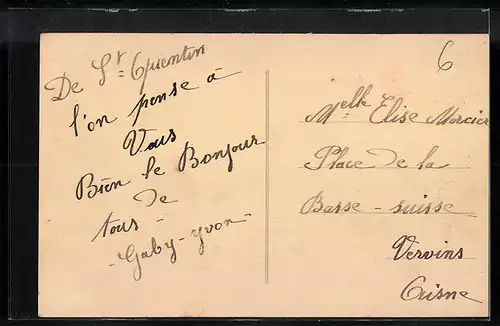 De St= Quentin
l'on pense à
Vous
Bien le Bonjour
de
tous -
- Gaby - yvon -
6
Melle Elise Mercier
Place de la
Basse - suisse
Vervins
Aisne